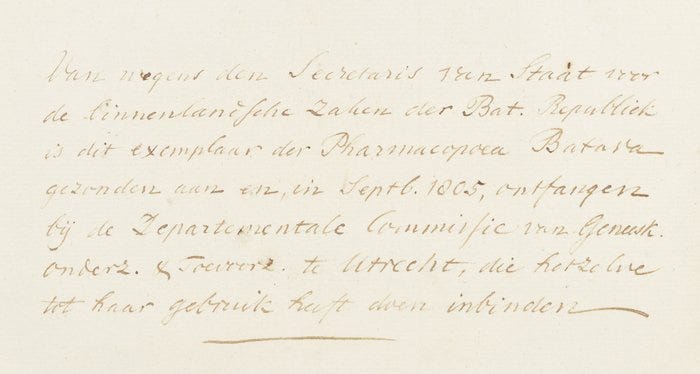 Van wegens den Secretaris van Staat voor
de binnenlandsche Zaken der Bat. Republiek
is dit exemplaar der Pharmacopoea Batava
gezonden aan en, in Septb. 1805, ontfangen
bij de Departementale Commissie van Geneesk.
onderz. & Toevoorz. te Utrecht, die hetzelve
tot haar gebruik heeft doen inbinden